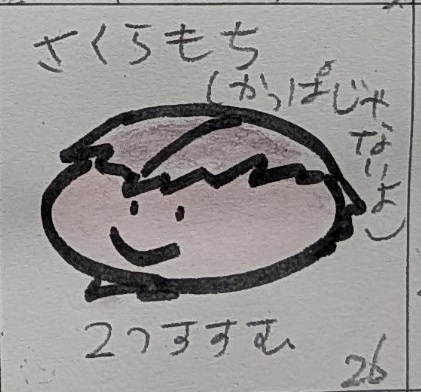 さくらもち
(かっぱじゃ
ないよ)
2つすすむ
26